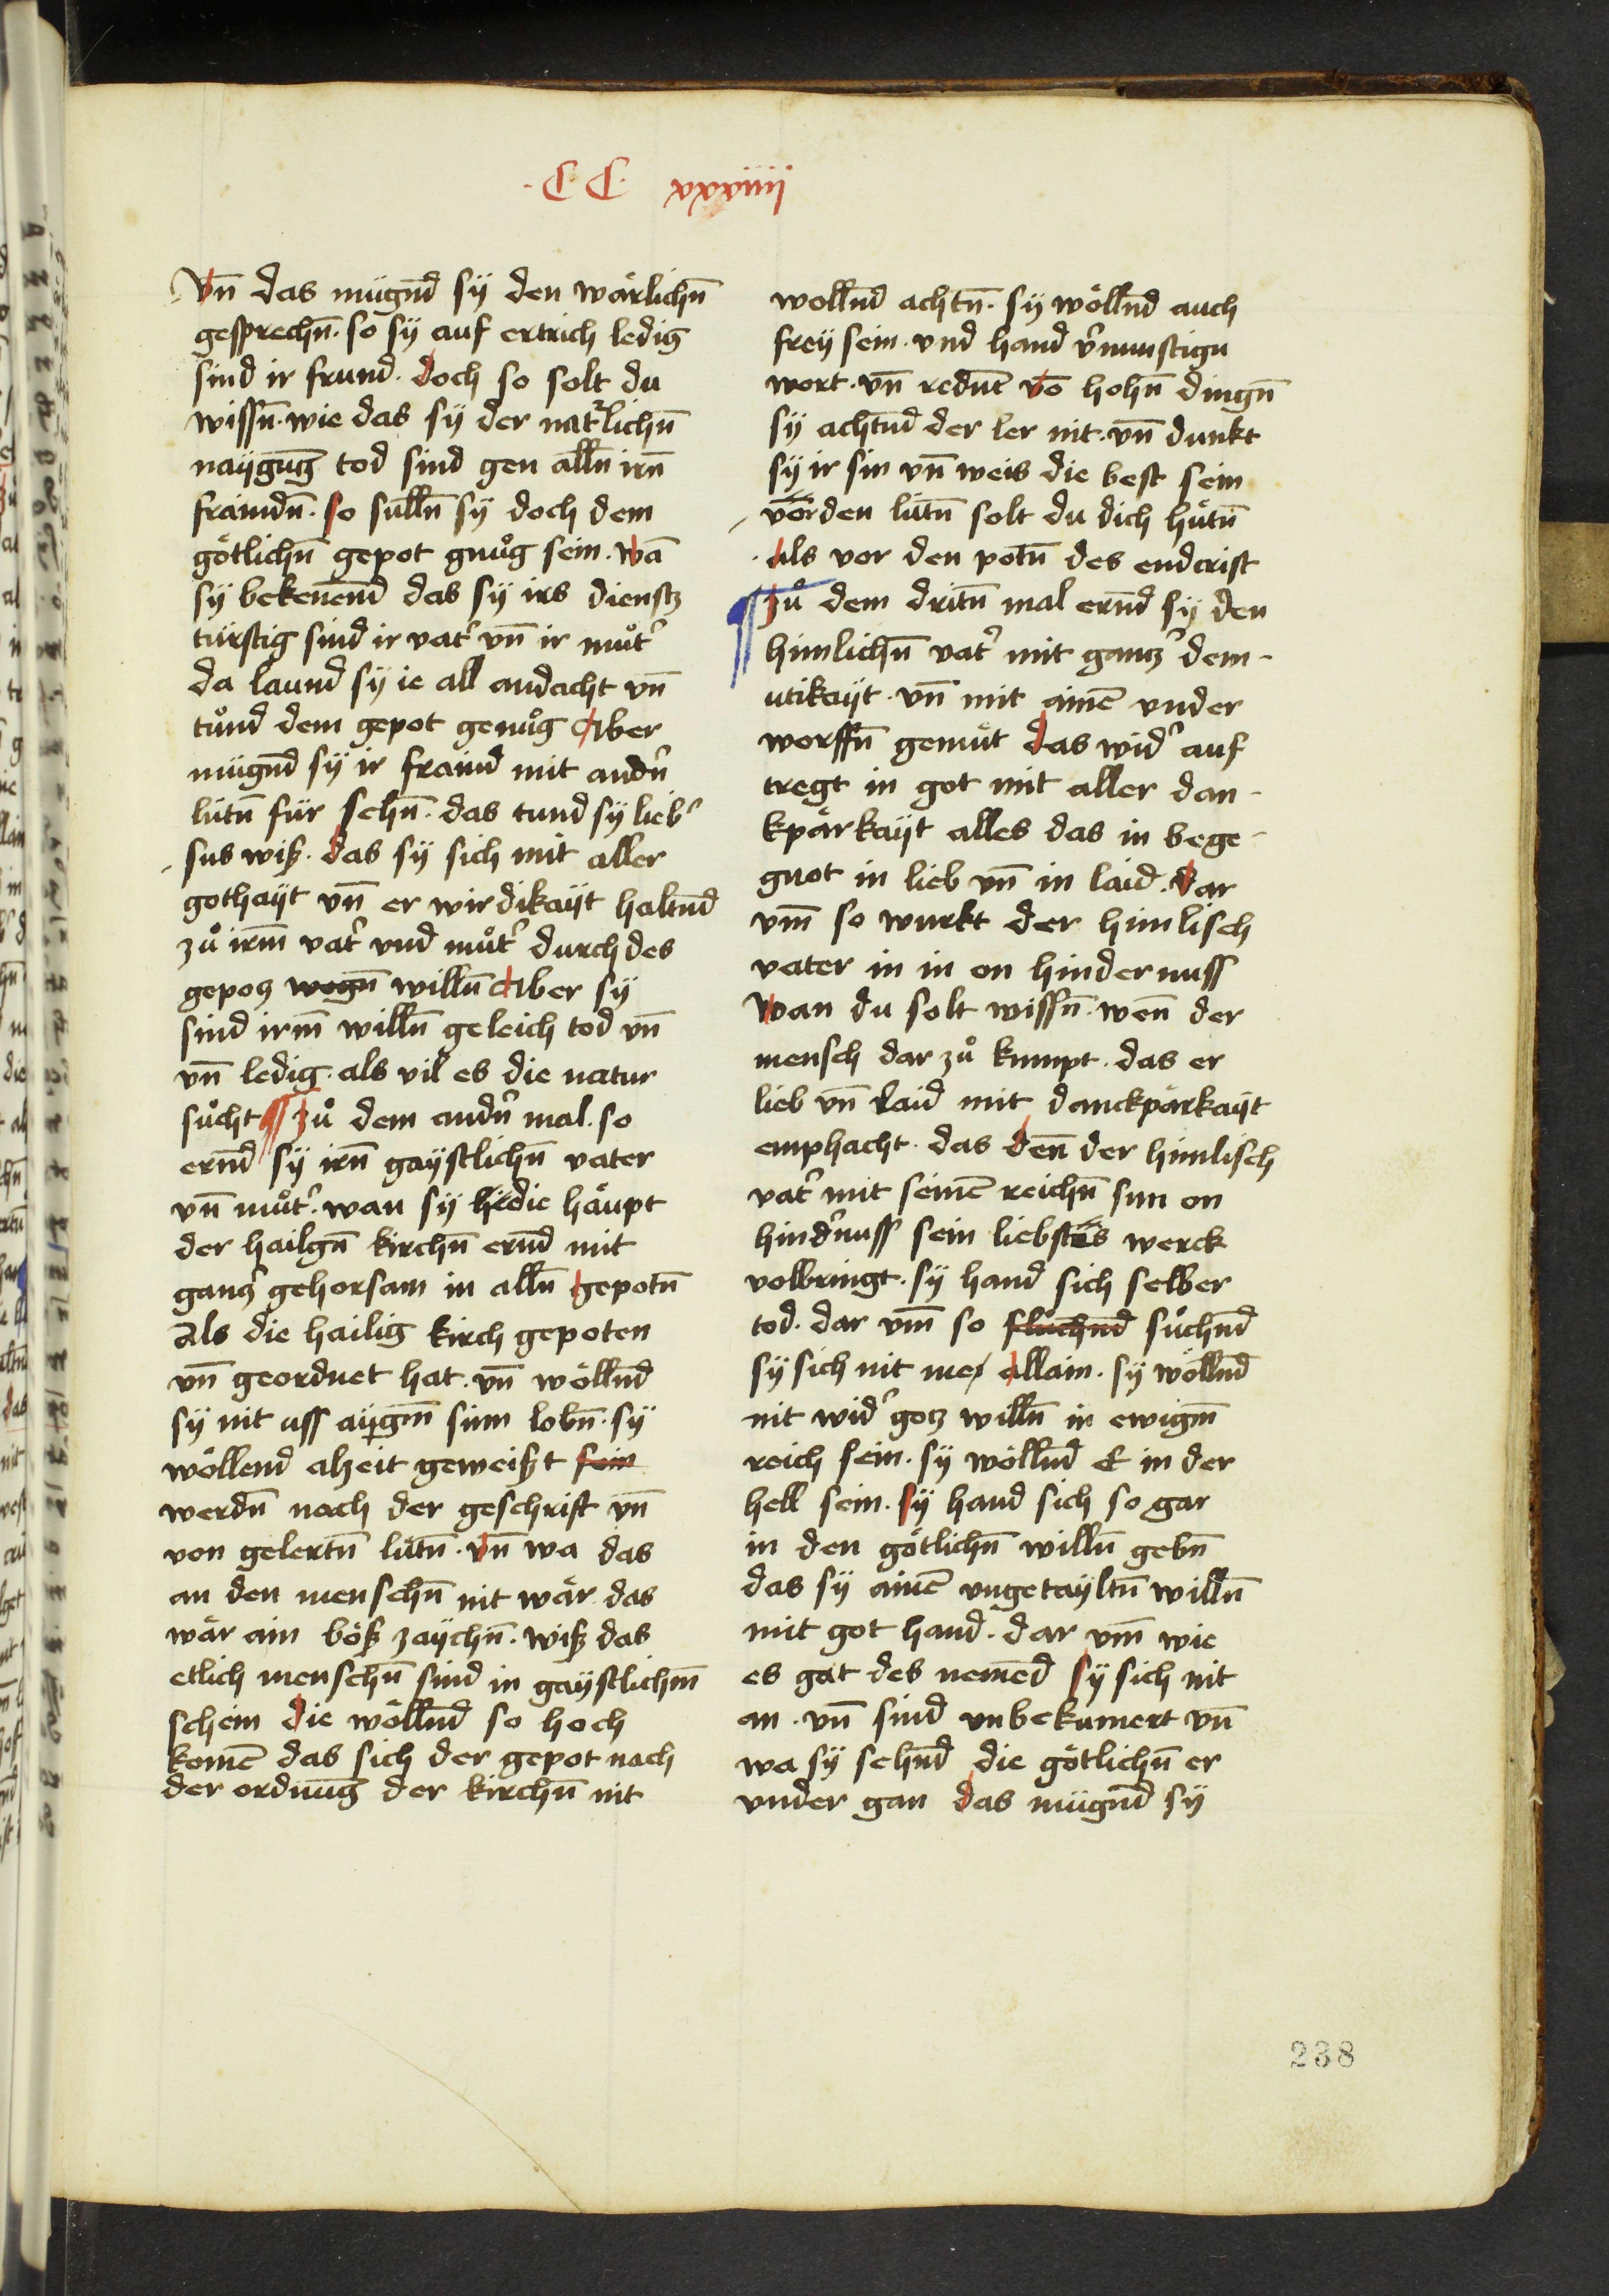 · C C · xxxiiij
Vn̄ das mügn̄d sÿ den wärlichn̄
gesprechn̄ · so sÿ auf ertrich ledig
sind ir frund · doch so solt du
wissn̄ · wie das sÿ der natᵉlichn̄
naÿgūg tod sind gen alln̄ irn̄
fraindn̄ · so sülln̄ sÿ doch dem
götlichn̄ gepot gnůg sein · wā
sÿ bekenēnd das sÿ irs dienstz
türstig sind ir vatʾ vn̄ ir můtʾ
da laund sÿ ie all andacht vn̄
tůnd dem gepot genůg Aber
mügn̄d sÿ ir fraind mit andʾn
lütn̄ für sehn̄ · das tund sÿ liebʾ
sus wiß · das sÿ sich mit aller
gothaÿt vn̄ er wirdikaÿt haltn̄d
zů irm̄ vatʾ vnd můtʾ durch des
gepotz wegn̄ willn̄ Aber sÿ
sind irm̄ willn̄ geleich tod vn̄
vn̄ ledig · als vil es die natur
sůcht ¶ zů dem andʾn mal · so
ern̄d sÿ irn̄ gaÿstlichn̄ vater
vn̄ můtʾ · wan sÿ die häupt
der hailgn̄ kirchn̄ ern̄d mit
gantzʾ gehorsam in alln̄ gepotn̄
Als die hailig kirch gepoten
vn̄ geordnet hat · vn̄ wölln̄d
sÿ nit uss aÿgm̄ sinn lobn̄ · sÿ
wöllend alzeit geweißt sein
werdn̄ nach der geschrift vn̄
von gelertn̄ lütn̄ · vn̄ wa das
an den menschn̄ nit wär · das
wär ain böß zaÿchn̄ · wiß das
etlich menschn̄ sind in gaÿstlichm̄
schein die wölln̄d so hoch
komē das sich der gepot nach
der ordnūg der kirchn̄ nit
wolln̄d achtn̄ · sÿ wölln̄d auch
freÿ sein · vnd hand vʾnunstign
wort · vn̄ redūt vō hohn̄ dingn̄
sÿ achtn̄d der ler nit · vn̄ dunkt
sÿ ir sin vn̄ weis die best sein
vor den lütn̄ solt du dich hütn̄
als vor den potn̄ des endcrist
¶ zů dem dritn̄ mal ern̄d sÿ den
himlichn̄ vatʾ mit gantzʾ dem-
utikaÿt · vn̄ mit ainē vnder
worffn̄ gemüt das widʾ auf
tregt in got mit aller dan-
kpärkaÿt alles das in bege-
gnot in lieb vn̄ in laid · dar
vm̄ so wurkt der himlisch
vater in in on hindernuss
wan du solt wissn̄ · wen̄ der
mensch dar zů kumpt · das er
lieb vn̄ laid mit danckpärkaÿt
emphacht · das den̄ der himlisch
vatʾ mit seinē reichn̄ sun on
hindʾnuss sein liebstes werck
volbringt · sÿ hand sich selber
tod · dar vm̄ so fluchn̄d sůchn̄d
sÿ sich nit me allain · sÿ wölln̄d
nit widʾ gotz willn̄ in ewigm̄
reich sein · sÿ wölln̄d E in der
hell sein · sÿ hand sich so gar
in den götlichn̄ willn̄ gebn̄
das sÿ ainē vngetaÿltn̄ willn̄
mit got hand · dar vm̄ wie
es gat des nemēd sÿ sich nit
an · vn̄ sind vnbekumert vn̄
wa sÿ sehn̄d die götlichn̄ er
vnder gan das mügn̄d sÿ
238